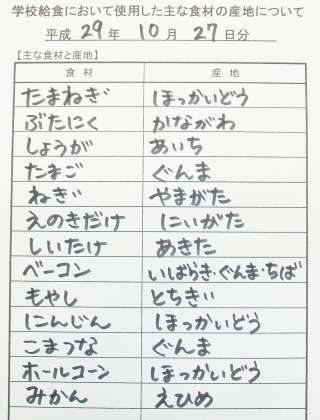 学校給食において使用した主な食材の産地について
平成 29 年 10 月 27 日分
【主な食材と産地】
食材 産地
たまねぎ ほっかいどう
ぶたにく かながわ
しょうが あいち
たまご ぐんま
ねぎ やまがた
えのきだけ にいがた
しいたけ あきた
ベーコン いばらき・ぐんま・ちば
もやし とちぎ
にんじん ほっかいどう
こまつな ぐんま
ホールコーン ほっかいどう
みかん えひめ